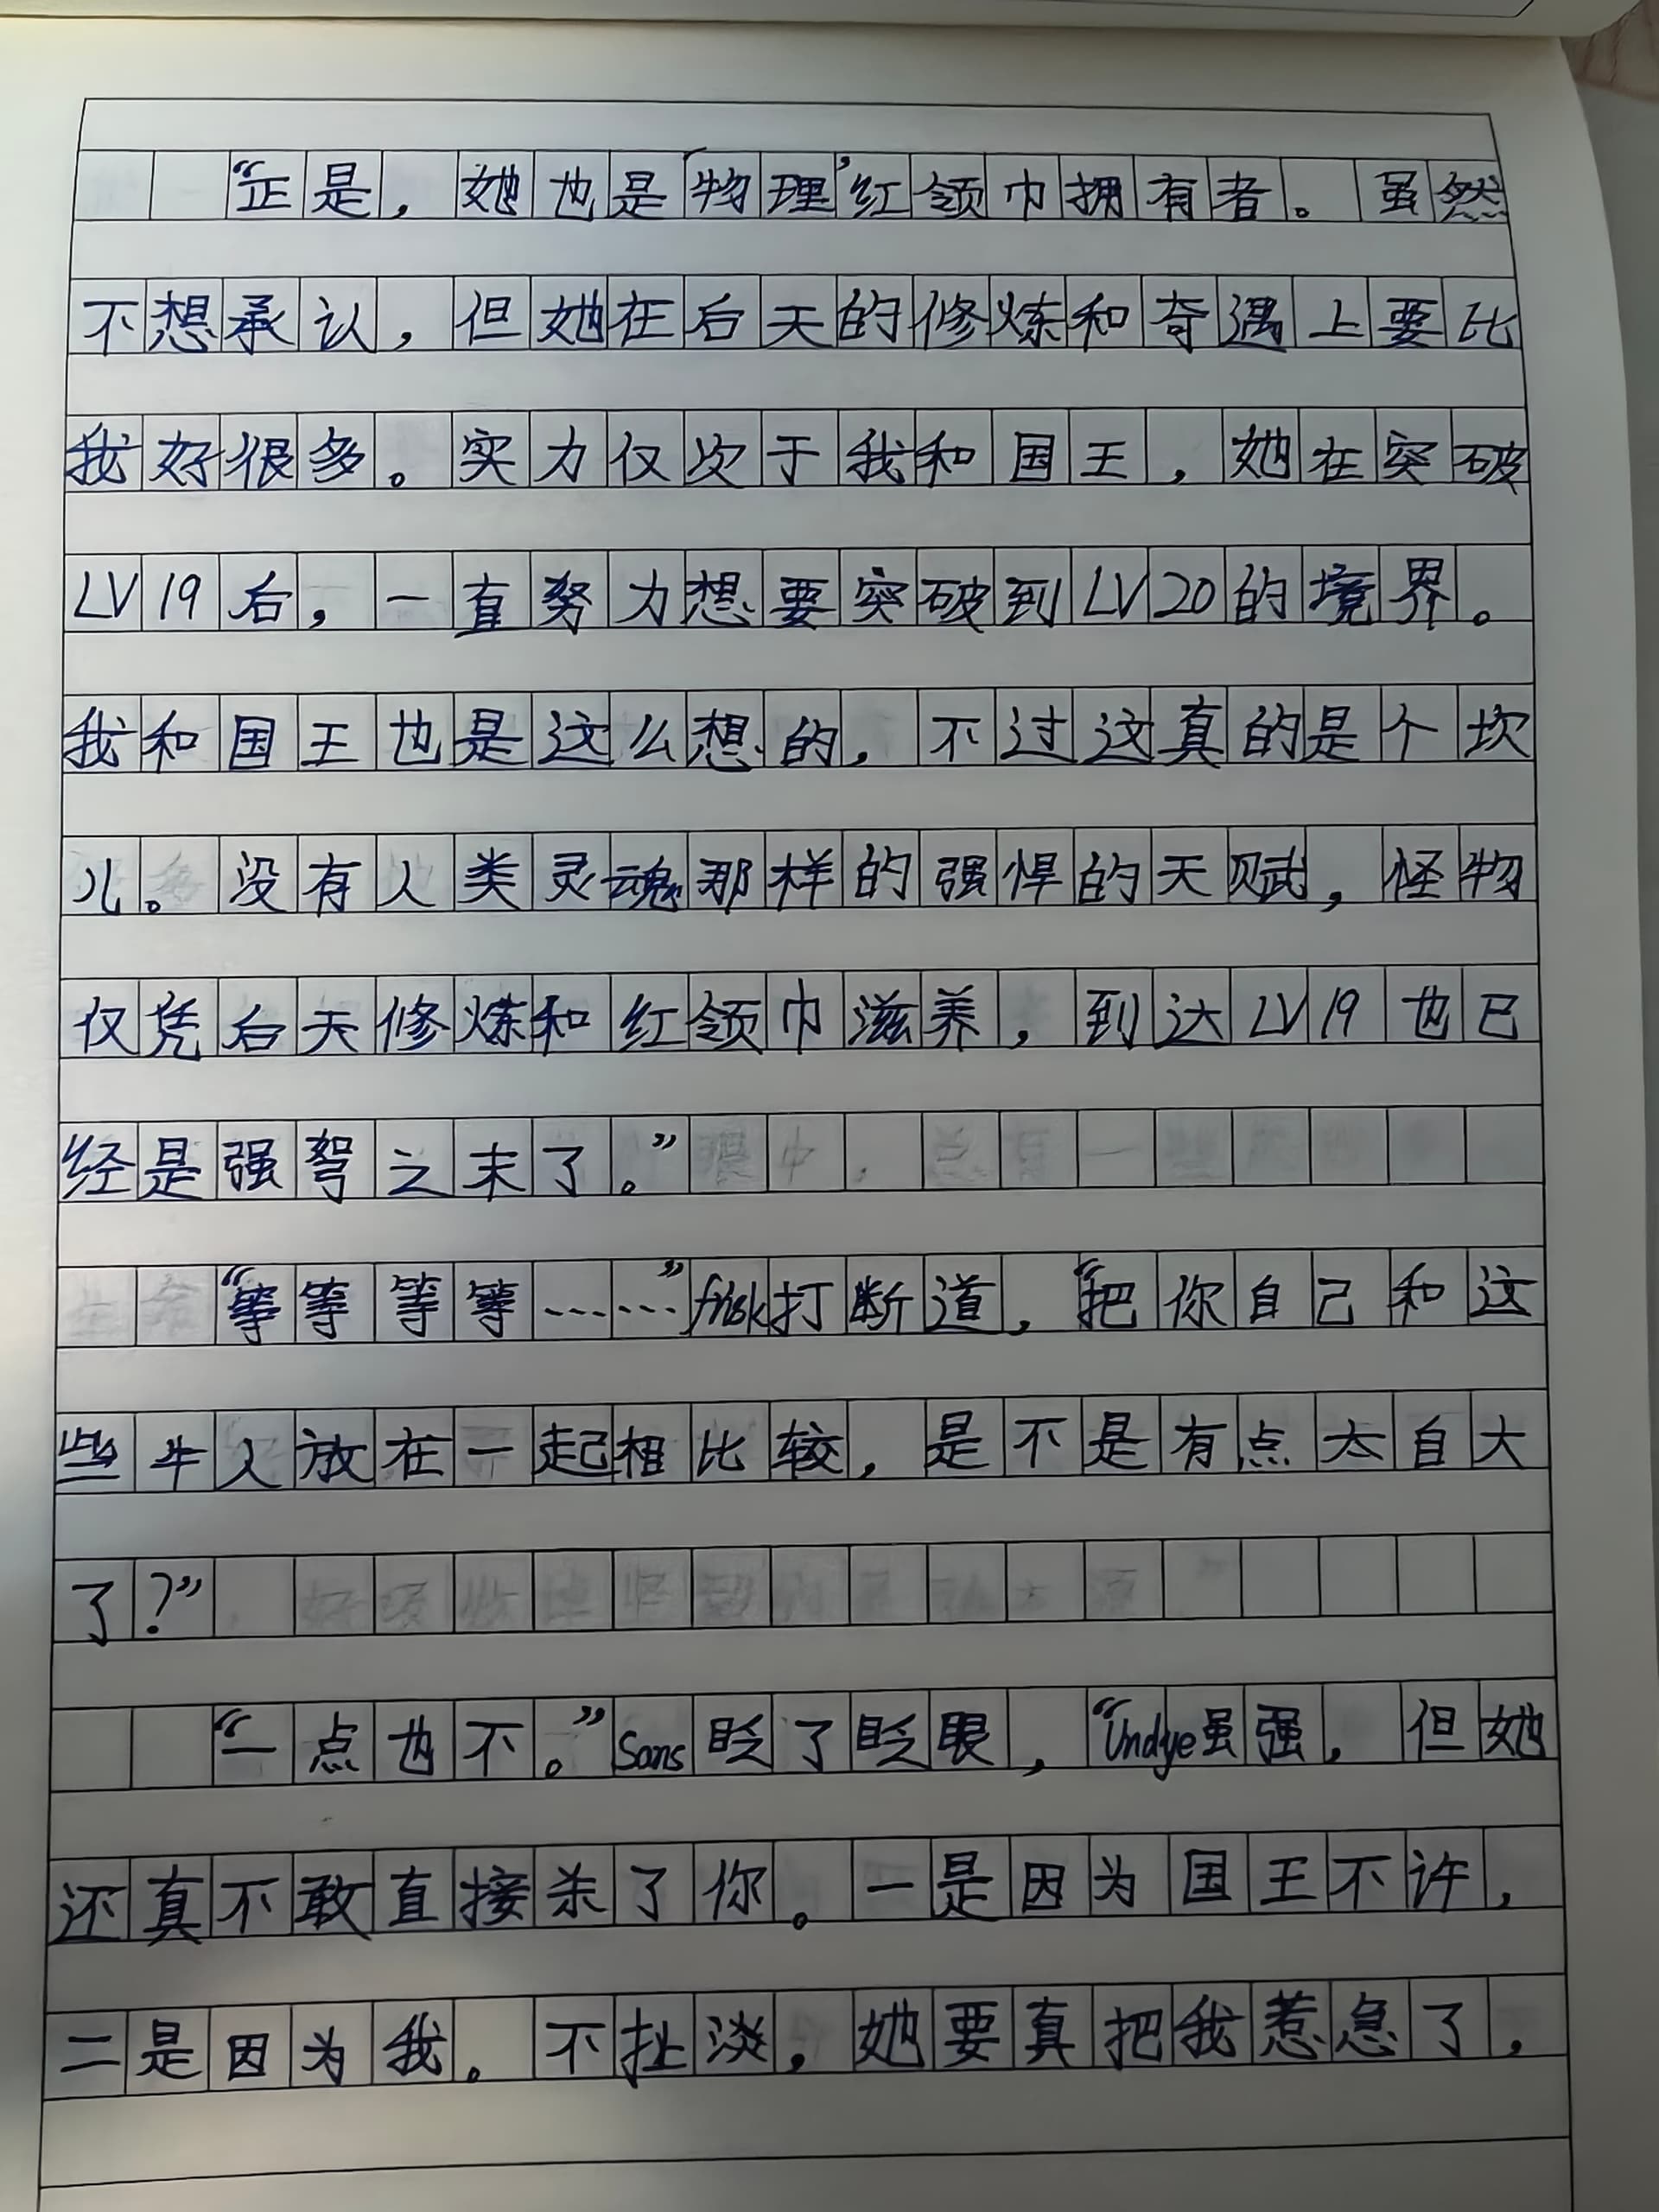 “正是，她也是‘物理’红领巾拥有者。虽然
不想承认，但她在后天的修炼和奇遇上要比
我好很多。实力仅次于我和国王，她在突破
LV19后，一直努力想要突破到LV20的境界。
我和国王也是这么想的，不过这真的是个坎
儿。没有人类灵魂那样的强悍的天赋，怪物
仅凭后天修炼和红领巾滋养，到达LV19也已
经是强弩之末了。”
“等等等等……”frisk打断道，“把你自己和这
些牛人放在一起相比较，是不是有点太自大
了？”
“一点也不。”Sans眨了眨眼，“Undye虽强，但她
还真不敢直接杀了你。一是因为国王不许，
二是因为我。不扯淡，她要真把我惹急了，